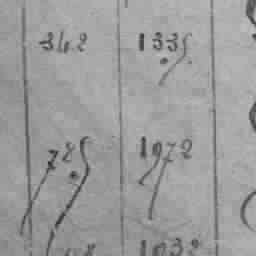 342 1335
785 1972
1032